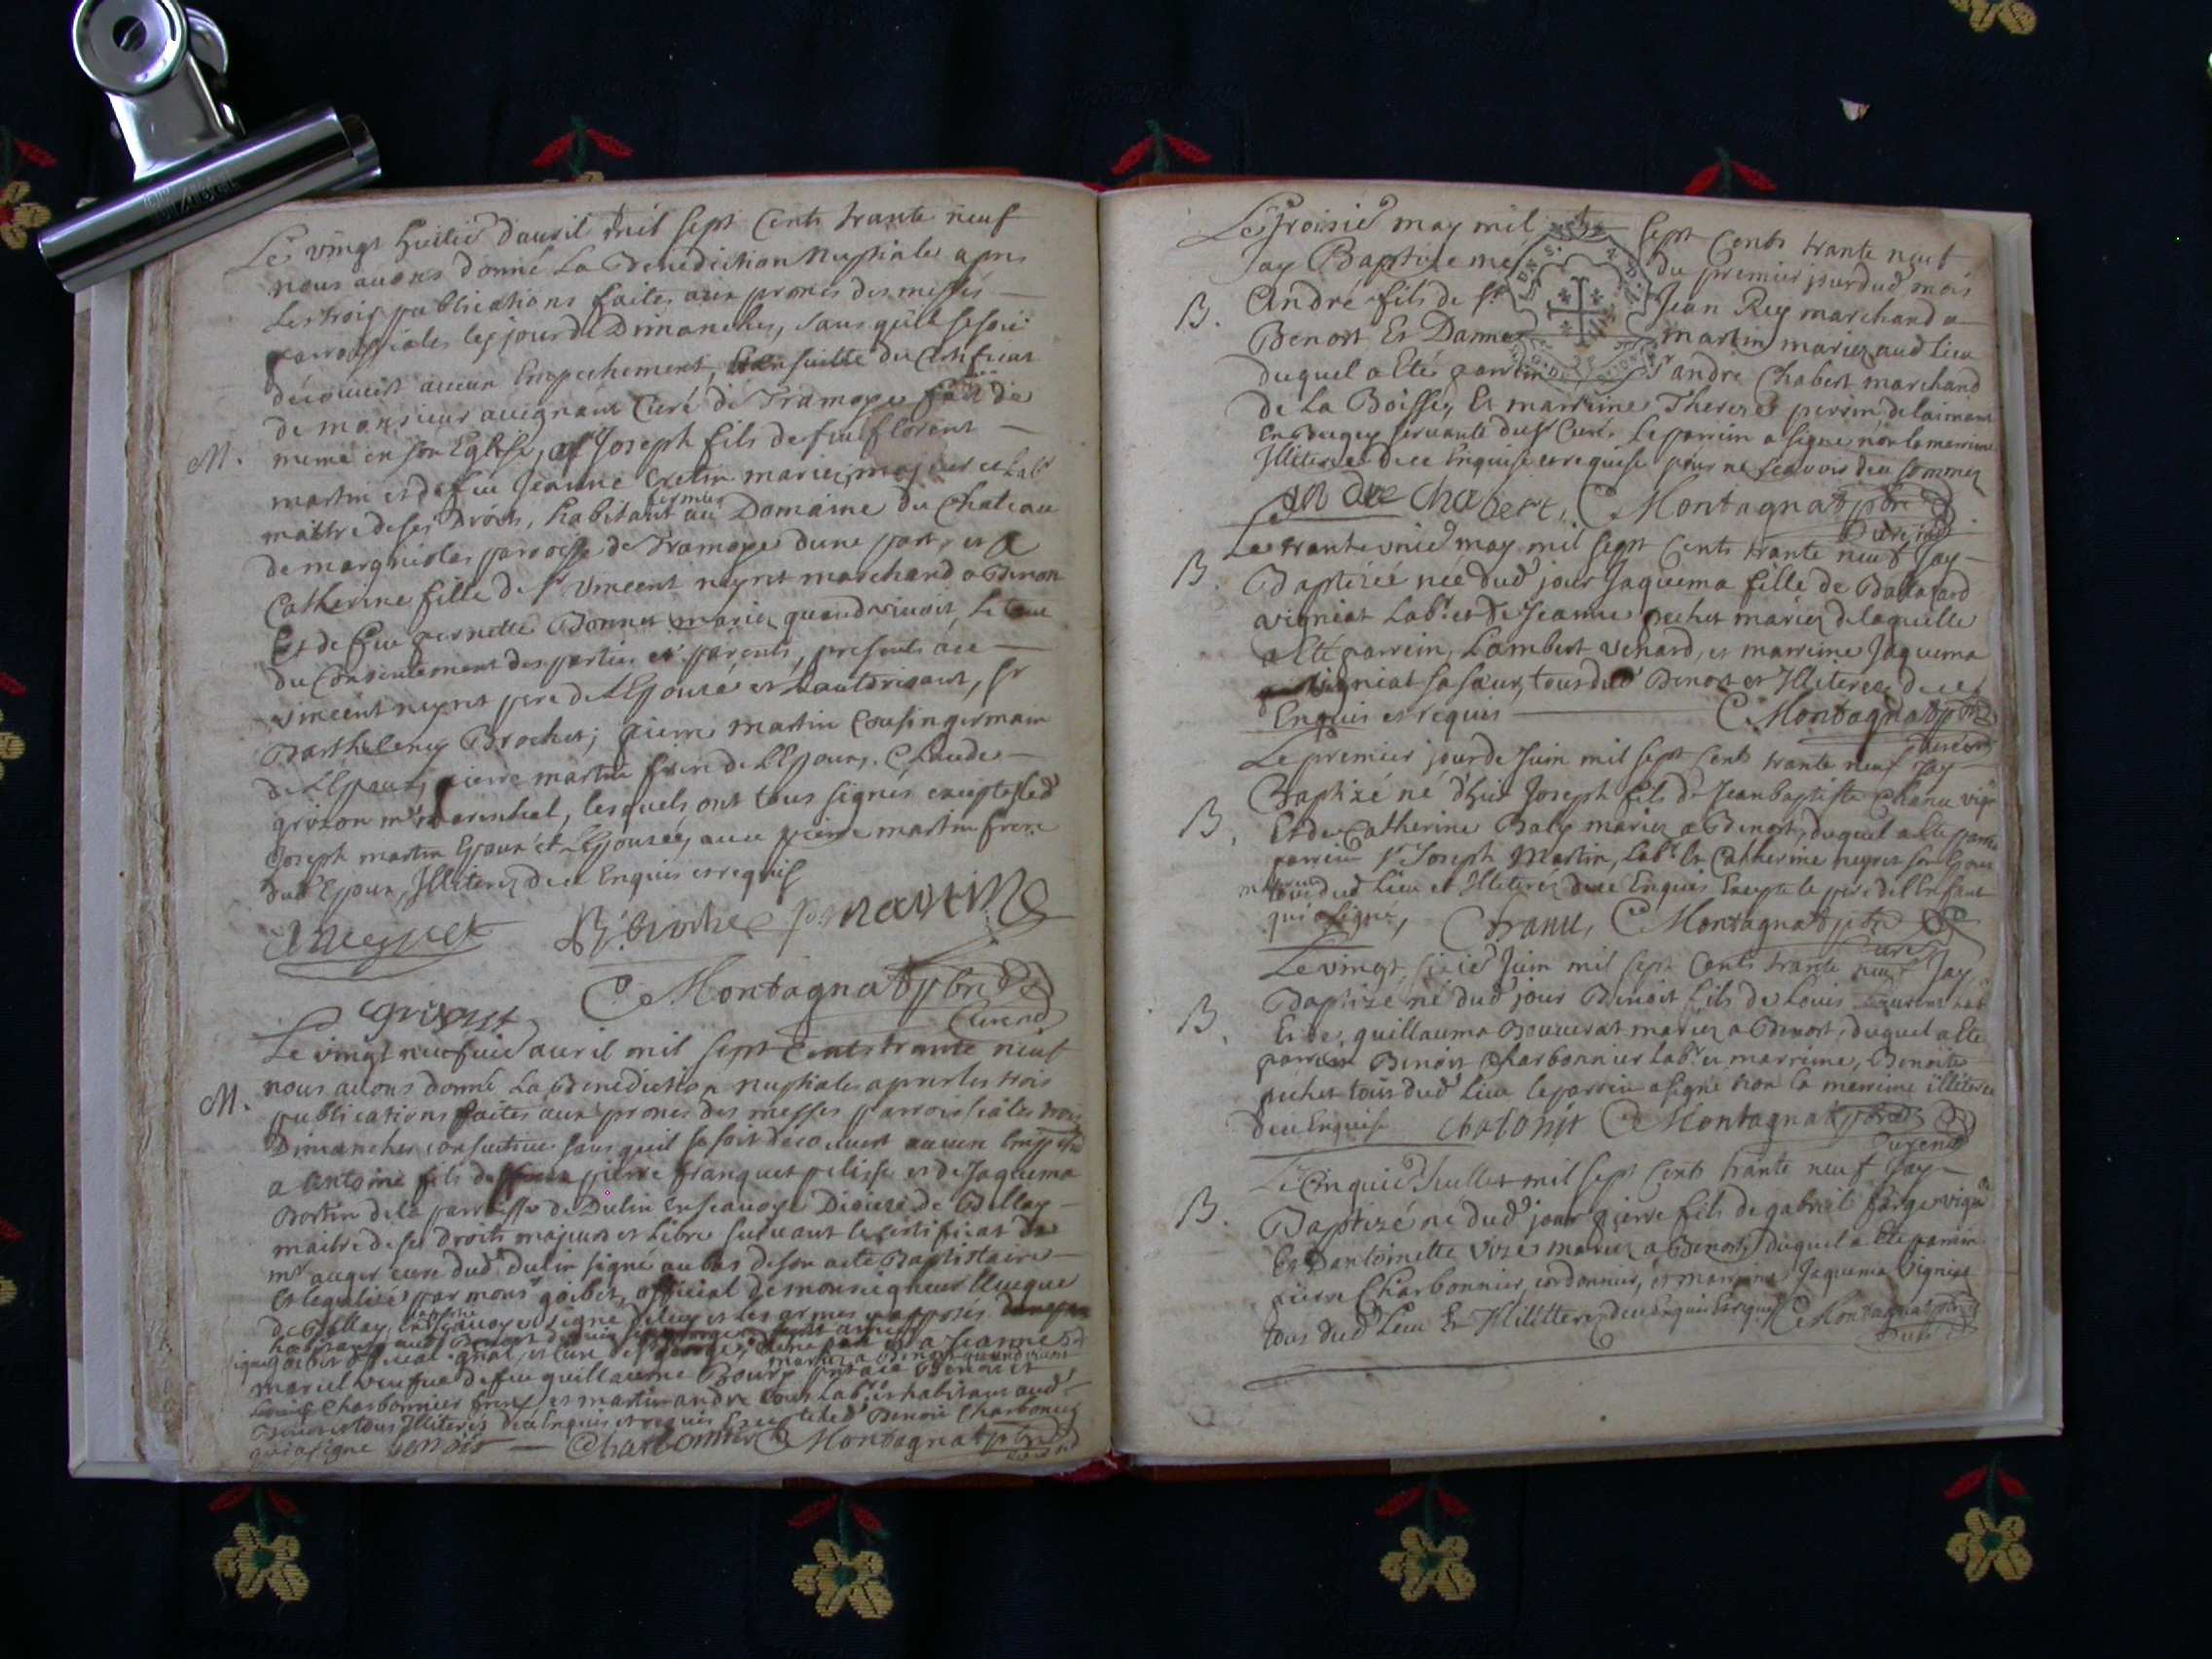 Le vingt huitie d'avril mil sept Cents trante neuf
nous avons donné La Benediction Nuptiale apres
Les trois publications faites aux prones des messes
parroissiales les jour de Dimanches, sans qu'il se soit
découvert aucun Empechement, Et ensuitte du Certificat
de monsieur avignant Curé de Tramoye
meme en son Eglise, a Joseph fils de feu florent
M.
martin et de feu Jeanne mariez, majeur et
maitre de ses Droits, habitant au Domaine du Chateau
fermier
de margnolas parroisse de Tramoye d'une part, et a
Catherine fille de Sr vincent neyret marchand a Benost
Et de feue pernette Bonnet mariez quand vivoit, le tout
du Consentement des parties et parents, presents ace
vincent neyret pere de L'Epousée et L'autorisant, sr
Barthelemy Brochet, pierre martin Cousin germain
de L'Epoux, pierre martin frere de L'Epoux, Claude
grizon me marechal, lesquels ont tous signés excepté led
Joseph martin Epoux et L'Epousée, avec pierre martin frere
dud Epoux, Illiterez de ce Enquis et requis
Vneyret Bte brochet p martin
C Montagnat ptre
Curé
grizon
Le vingt neufvie avril mil sept Cents trante neuf
nous avons donné La Benediction nuptiale apres les trois
M.
publications faites aux prones des messes parroissiales trois
Dimanches consecutive sans qu'il se soit découvert aucun
a Antoine fils de pierre franquet pelisse et de Jaquema
Bortin de la parroisse de Dulin En Savoye Diocese de Bellay
maitre de ses droits majeur et Libre suivant le certificat de
mr auger cure dud Dulin signé au bas de son acte Baptistaire
Et legalisé par monsr goibet, official de monseigneur L'Eveque
de Bellay, en Savoye signé de luy et les armes apposés
a Jeanne
mariez a Benost quand vivoit
mariel veufve de feu guillaume Bourg
Charbonnier frere et martin andre tous Labr et habitans aud
Benost tous Illiterés de ce Enquis et requis Excepté led Benoit Charbonnier
qui a signé benoit — Charbonnier C Montagnat ptre
Le troisie may mil sept Cents trante neuf
Jay Baptizé né du premier jour dud mois
B. André fils de Sr Jean Rey marchand a
Benost Et Danne martin mariez aud Lieu
duquel a Eté parrein Sr andré Chabert marchand
de La Boisse, Et marreine Thereze perrin de
En Bugey servante dud Sr Curé. Le parrein a signé non la marreine
Illiterée de ce Enquise et requise pour ne scavoir de ce sommez
andre Chabert, C Montagnat ptre
Curé
Le trante unie may mil sept Cents trante neuf Jay
B. Baptizéé née dud jour Jaquema fille de
vigniat Labr et de Jeanne pechet mariez de laquelle
a Eté parrein, Lambert venard, et marreine Jaquema
vigniat sa sœur, tous dud Benost et Illiterez de ce
Enquis et requis C Montagnat ptre
Curé
Le premier jour de Juin mil sept Cents trante neuf Jay
Baptizé né d'hier Joseph fils de Jean baptiste Chanu
B. Et de Catherine Baly mariez a Benost, duquel a Eté
parrein Sr Joseph Martin, Labr Et Catherine neyret son Epouse
marreine tous dud Lieu et Illiterés de ce Enquis Excepté le pere de l'Enfant
qui a signé, Chanu, C Montagnat ptre
Curé
Le vingt sixie Juin mil sept Cents trante neuf Jay
B. Baptizé né dud jour Benoit fils de Louis
Et de guillauma mariez a Benost, duquel a Eté
parrein Benoit Charbonnier labr et marreine, Benoite
pechet tous dud Lieu le parrein a signé non la marreine illiterée
de ce Enquise C Montagnat ptre
Curé
Le Cinquie Juillet mil sept Cents trante neuf Jay
B. Baptizé né dud jour pierre fils de gabriel farge
Et Dantoinette mariez a Benost, duquel a Eté parrein
pierre Charbonnier, cordonnier, et marreine Jaquema vigniat
tous dud Lieu Et Illitterez de ce Enquis Et requis C Montagnat ptre
Curé